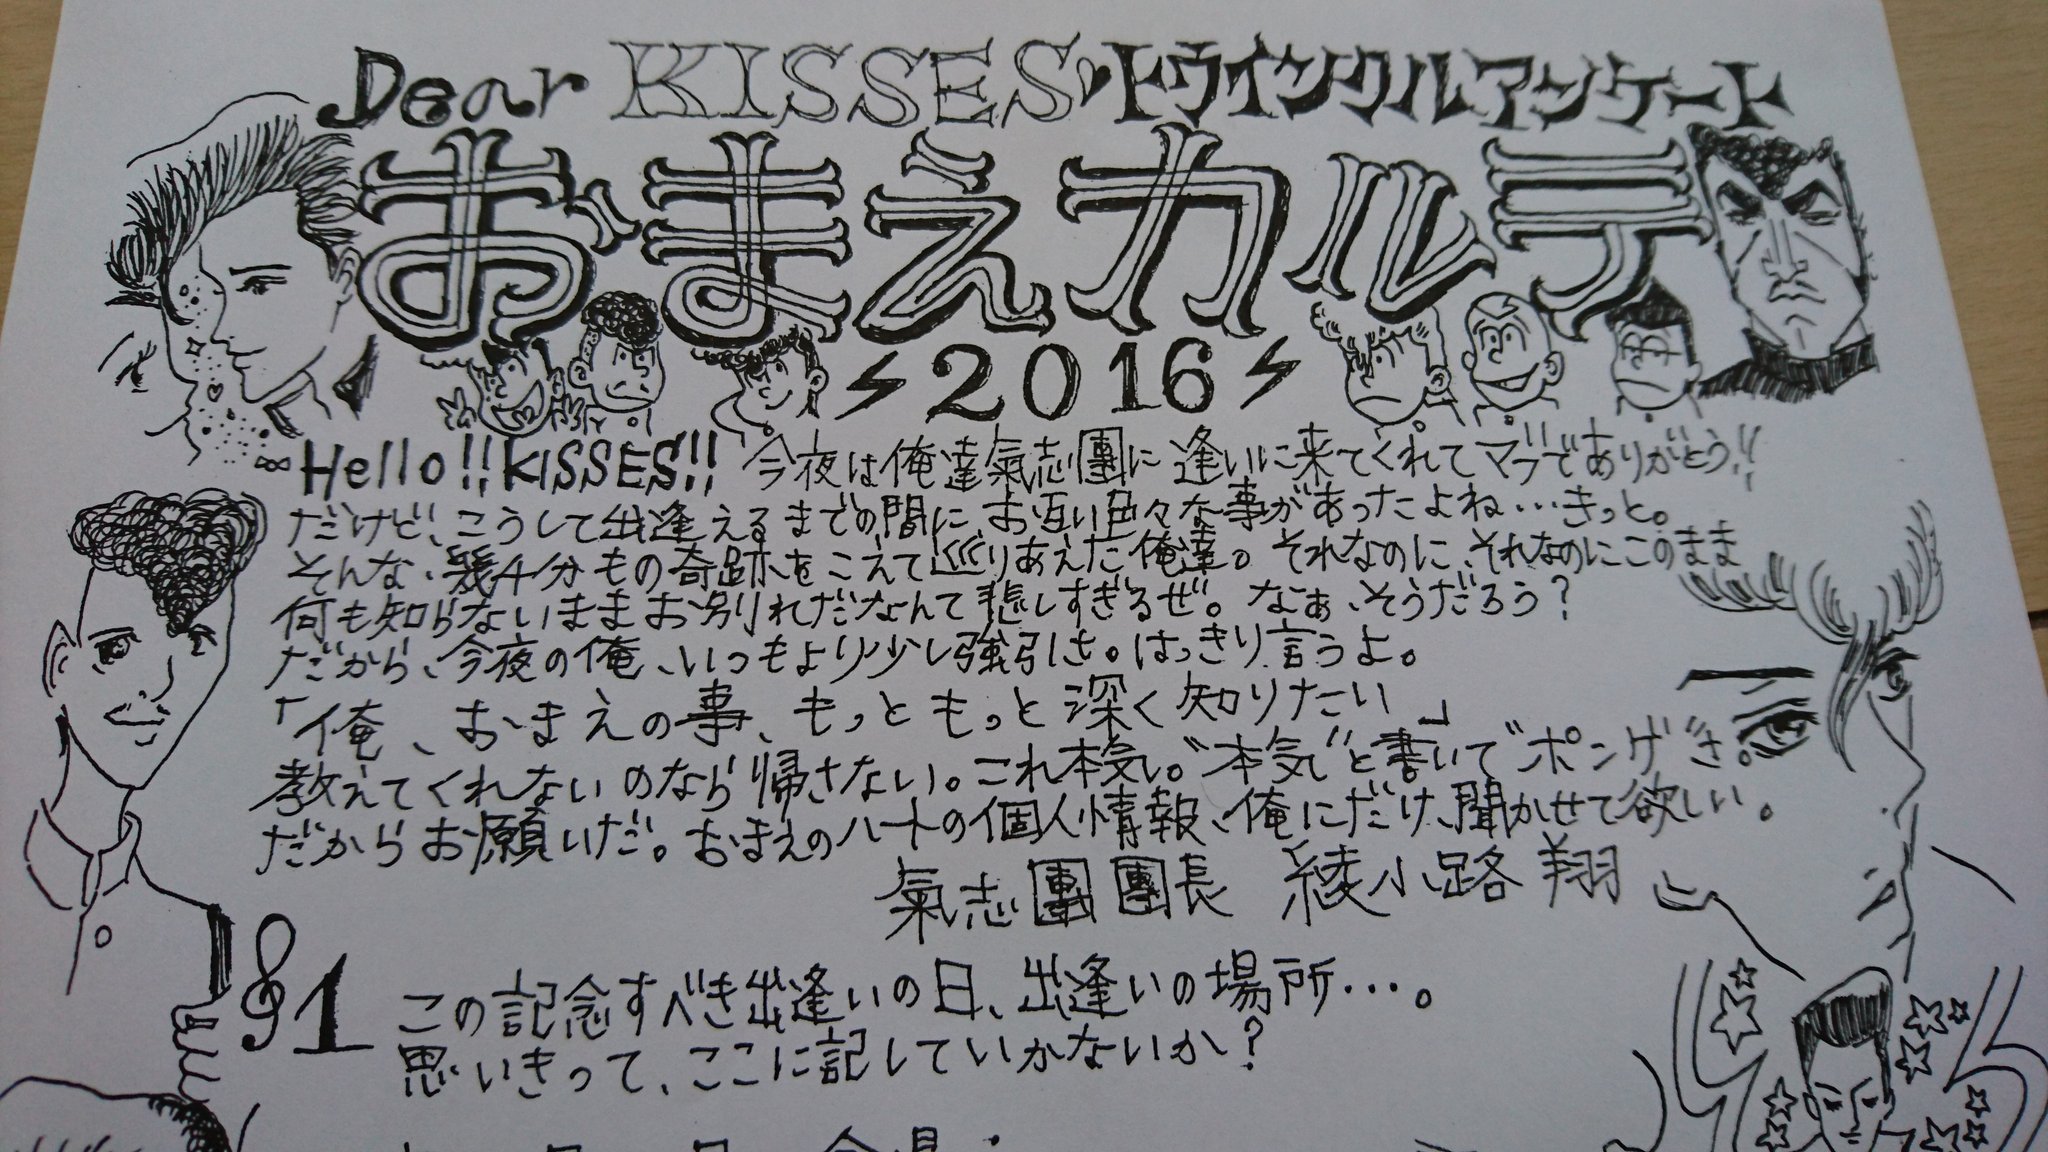 Dear KISSES♥トゥインクルアンケート
おまえカルテ
⚡2016⚡
Hello!!KISSES!! 今夜は俺達氣志團に逢いに来てくれてマブでありがとう!!
だけど、こうして出逢えるまでの間に、お互い色々な事があったよね…きっと。
そんな、幾千分もの奇跡をこえて巡りあえた俺達。それなのに、それなのにこのまま
何も知らないままお別れだなんて悲しすぎるぜ。なぁ、そうだろう?
だから、今夜の俺、いつもより少し強引さ。はっきり言うよ。
「俺、おまえの事、もっともっと深く知りたい」
教えてくれないのなら帰さない。これ本気。"本気"と書いて"ポンゲ"さ。
だからお願いだ。おまえのハートの個人情報、俺にだけ、聞かせて欲しい。
氣志團團長 綾小路 翔
1 この記念すべき出逢いの日、出逢いの場所…。
思いきって、ここに記していかないか?